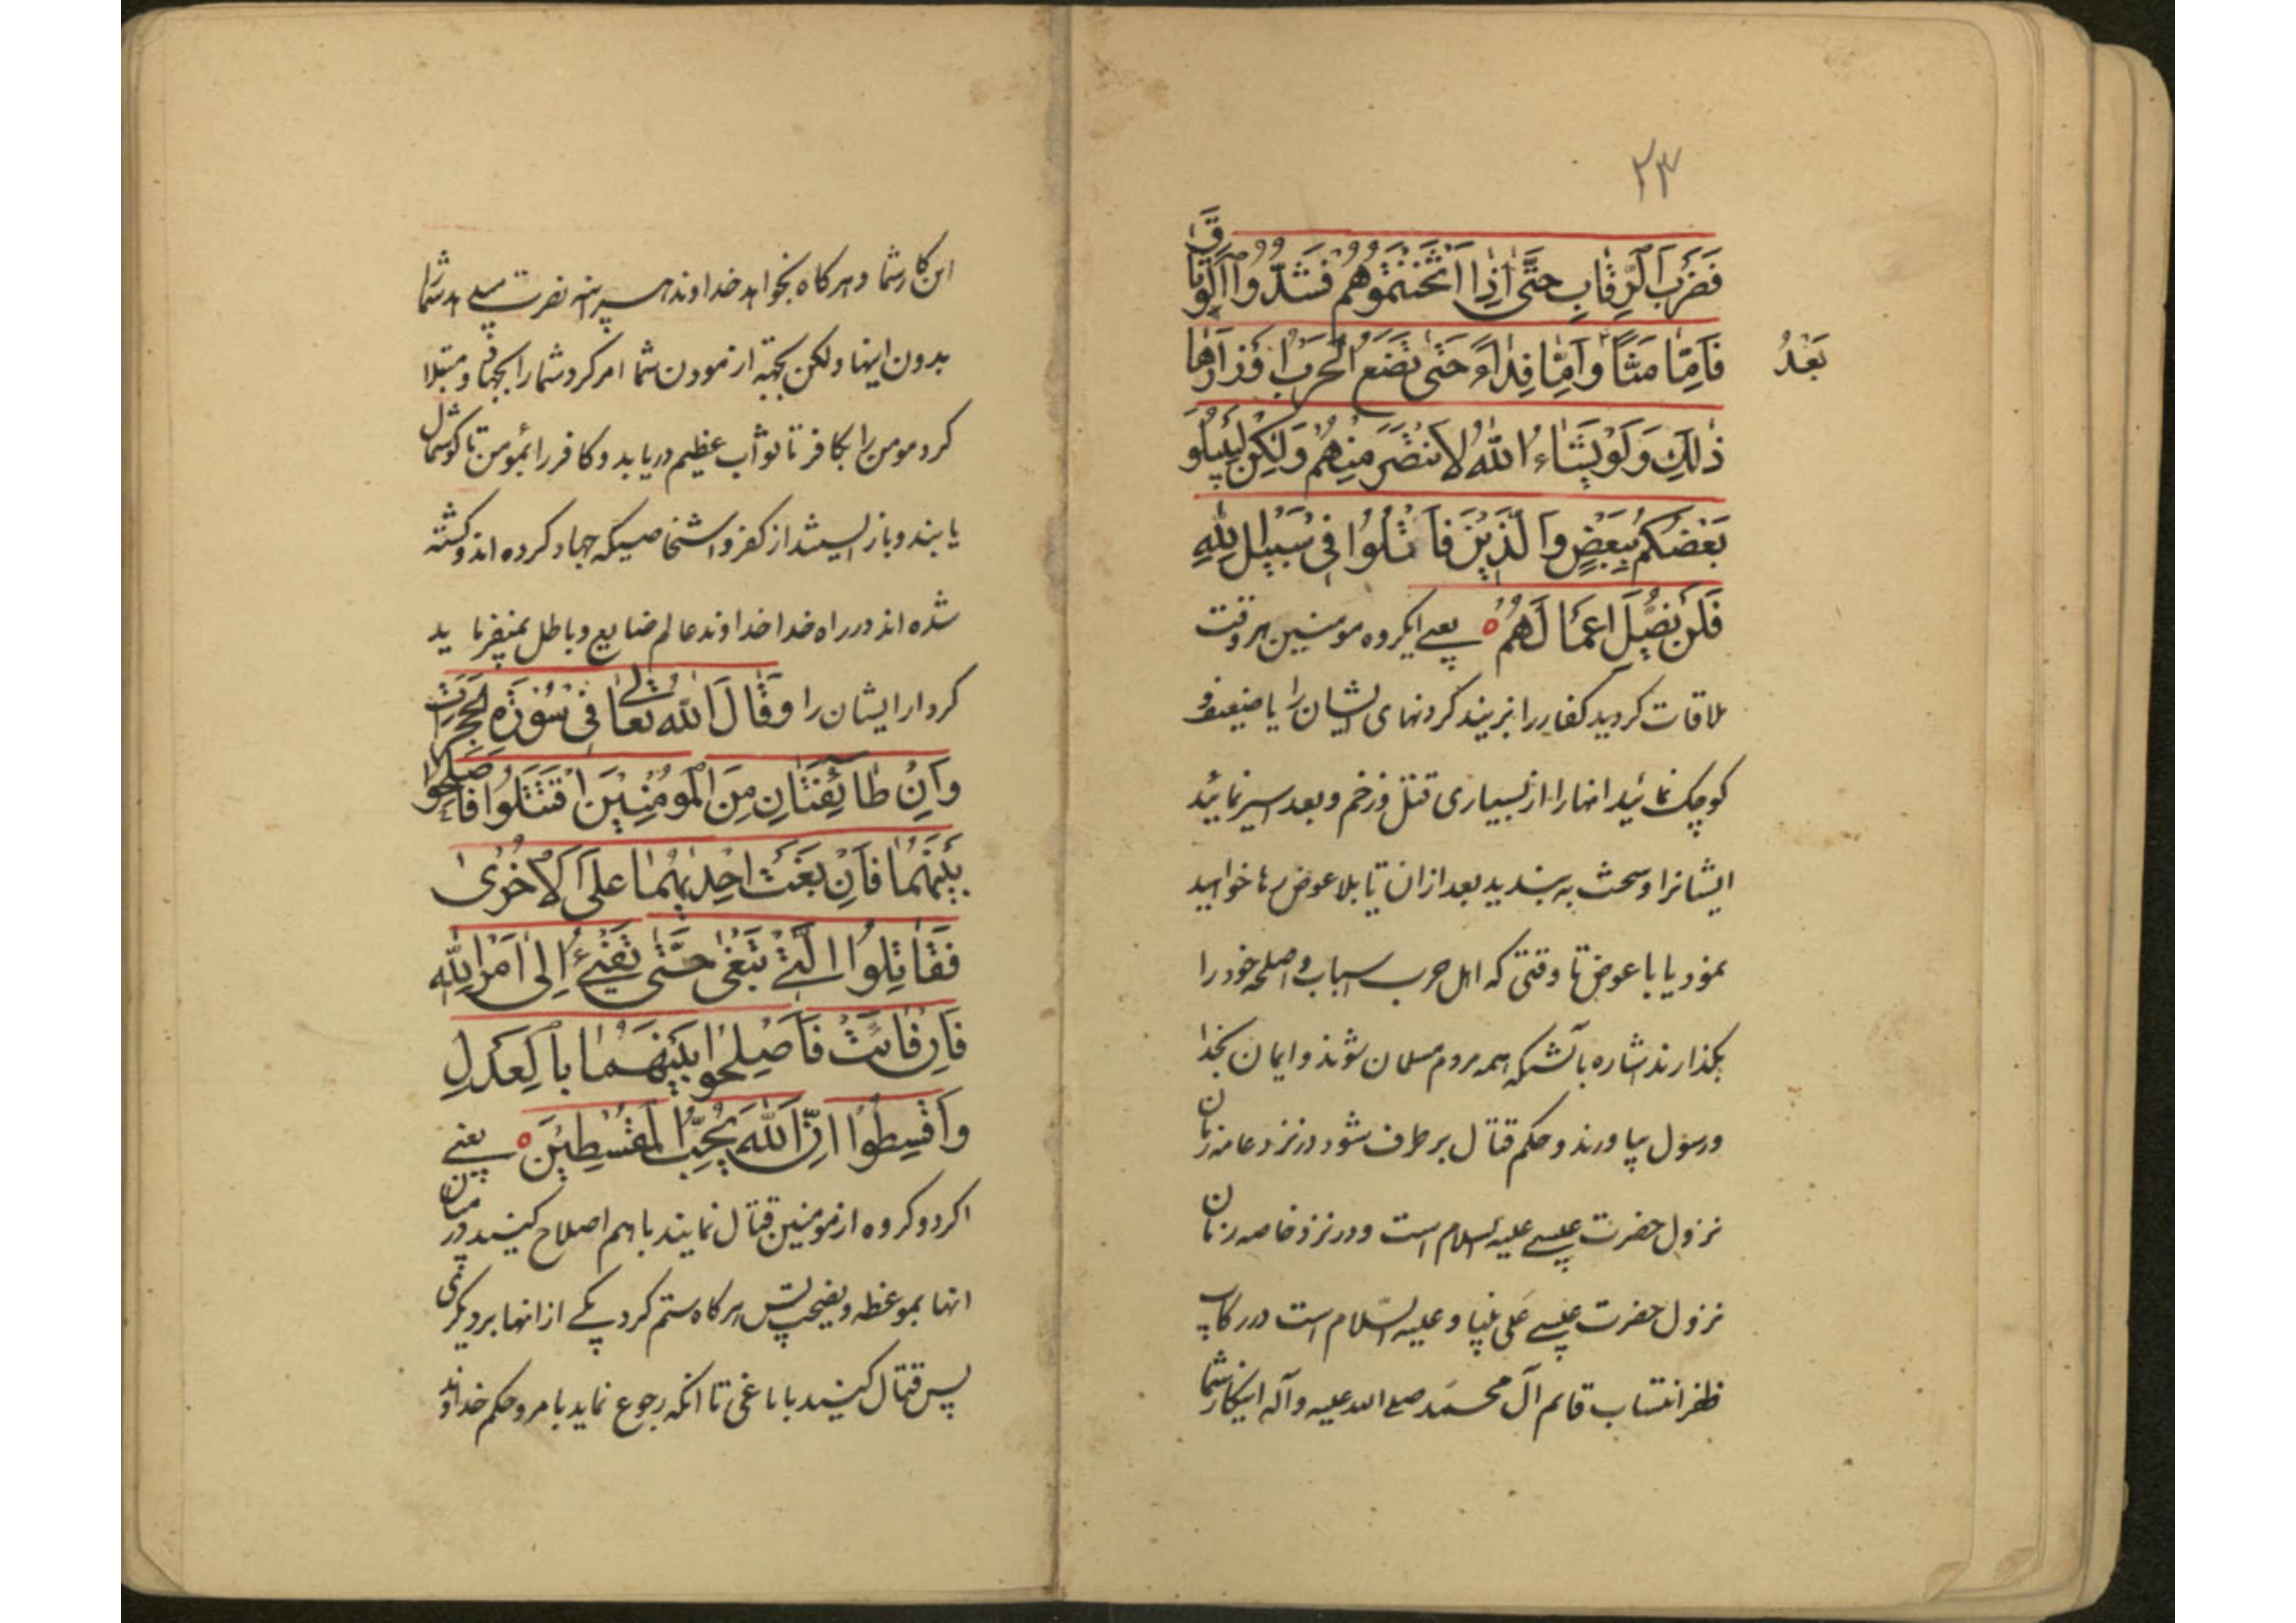 ۲۳
فَضَرْبَ الرِّقٰابِ حَتّٰى اِذٰا اَثْخَنْتُمُوهُمْ فَشُدُّوا الْوَثٰاقَ
بَعْدُ
فَاَمّٰا مَنّاً وَاَمّٰا فِدٰاءً حَتّٰى تَضَعَ الْحَرْبُ اَوْزٰارَهٰا
ذٰلِكَ وَلَوْ يَشٰاءُ اللهُ لَانْتَصَرَ مِنْهُمْ وَلٰكِنْ لِيَبْلُوَ
بَعْضَكُمْ بِبَعْضٍ وَالَّذِيْنَ قٰاتَلُوا فِى سَبِيْلِ اللهِ
فَلَنْ يُضِلَّ اَعْمٰالَهُمْ ه يعنے ايكروه مومنين هر وقت
ملاقات كرديد كفار را بزنيد كردنهاى ايشان را يا ضعيف و
كوچك نمائيد انها را از بسيارى قتل و زخم و بعد اسير نمائيد
ايشانرا و سخت به بنديد بعد از ان تا بلا عوض رها خواهيد
نمود يا با عوض تا وقتى كه اهل حرب اسباب و اصلحه خود را
بكذارند اشاره بآنستكه همه مردم مسلمان شوند و ايمان بخدا
و رسول بياورند و حكم قتال بر طرف شود در نزد عامه زمان
نزول حضرت عيسے عليه السلام است و در نزد خاصه زمان
نزول حضرت عيسے على نبينا و عليه السّلام است در ركاب
ظفر انتساب قائم آل محمّد صلے الله عليه و آله اينكار شما
اين كار شما و هر كاه بخواهد خداوند هر اينه نصرت ميدهد شما
بدون اينها ولكن بجهته ازمودن شما امر كرد شما را بجهاد و مبتلا
كرد مومن را بكافر تا ثوآب عظيم دريابد و كافر را بمومن تا كوشمال
يابند و باز ايستند از كفر و اشخاصيكه جهاد كرده اند و كشته
شده اند در راه خدا خداوند عالم ضايع و باطل نميفرمايد
كردار ايشان را وَقٰالَ اللهُ تعٰالى فِى سُوْرَةِ الْحُجُرٰاتِ
وَاِنْ طٰائِفَتٰانِ مِنَ الْمُوْمِنِيْنَ اقْتَتَلُوا فَاَصْلِحُوا
بَيْنَهُمٰا فَاِنْ بَغَتْ اِحْدٰيهُمٰا عَلَى الْاُخْرٰى
فَقٰاتِلُوا الَّتِےْ تَبْغِى حَتّٰى تَفِىْءَ اِلىٰ اَمْرِ اللهِ
فَاِنْ فٰائَتْ فَاَصْلِحُوا بَيْنَهُمٰا بِالْعَدْلِ
وَاَقْسِطُوا اِنَّ اللهَ يُحِبُّ الْمُقْسِطِيْنَ ه يعنے
اكر دو كروه از مومنين قتال نمايند با هم اصلاح كنيد در ميان
انها بموعظه و نصيحت پس هر كاه ستم كرد يكے از انها بر ديكرى
پس قتال كنيد با باغى تا انكه رجوع نمايد بامر و حكم خداوند